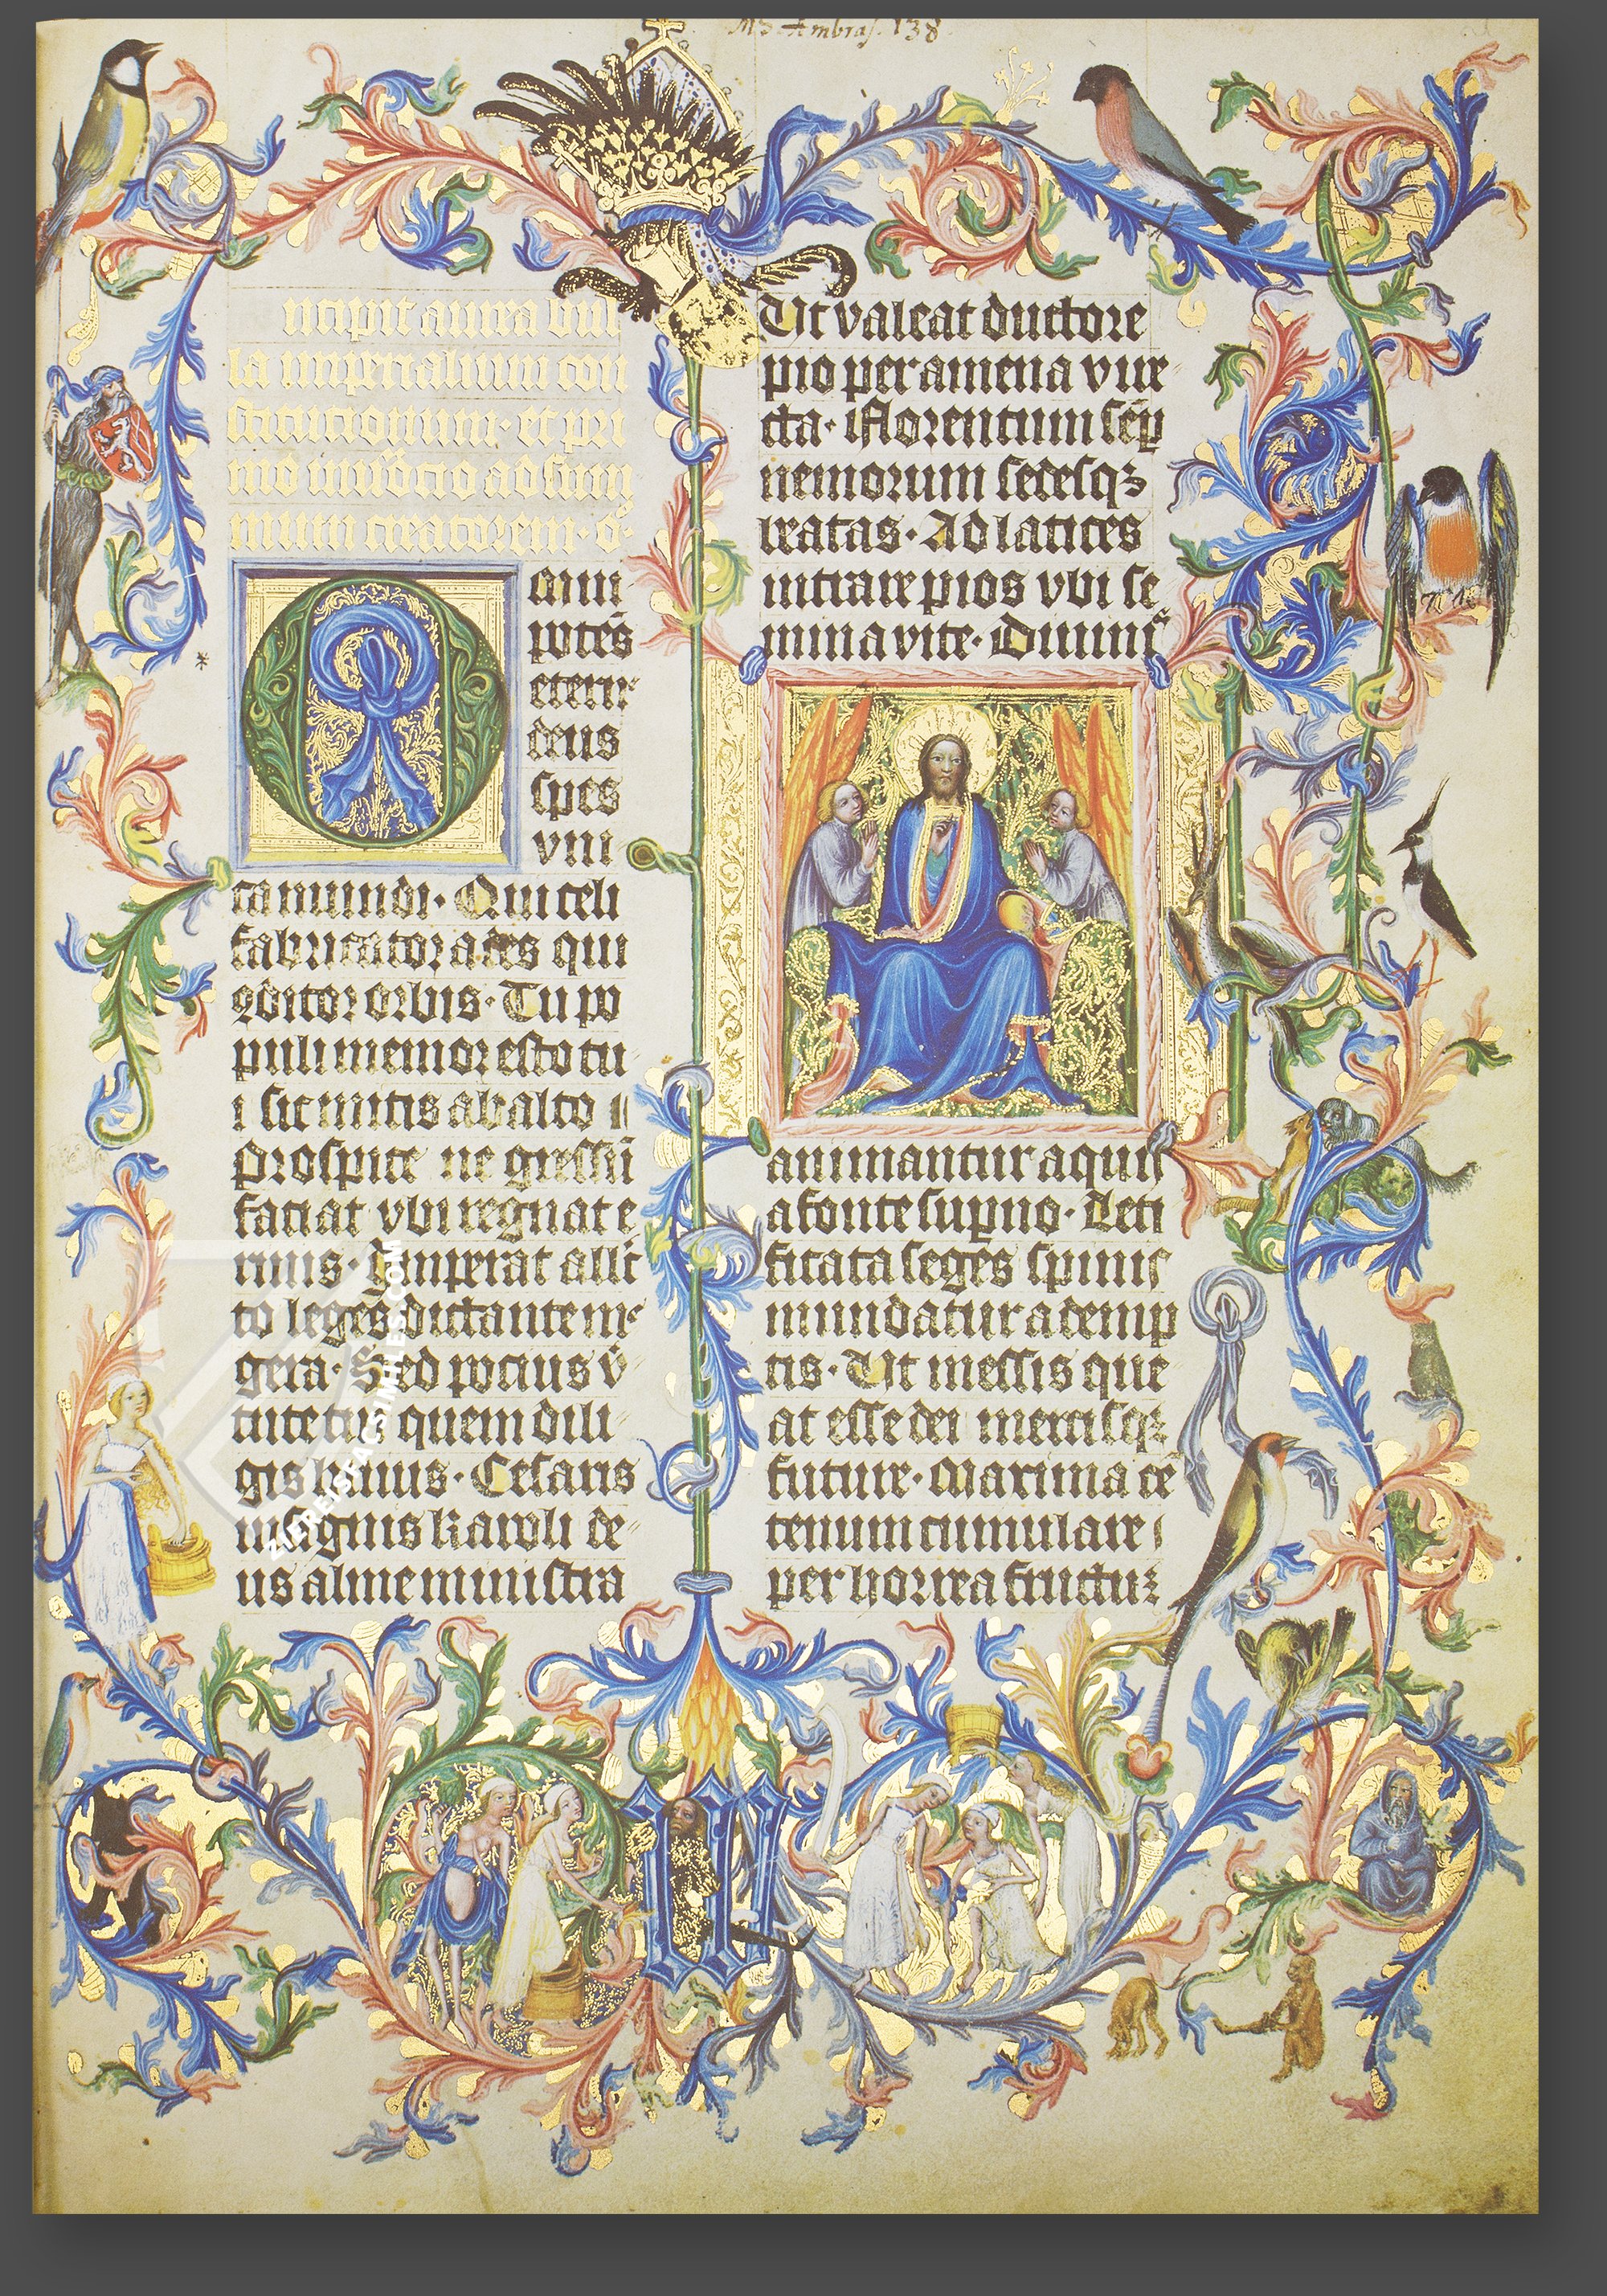 MS. Ambras. 138
ncipit aurea bul
la imperialium con
stitutionum· et pri
mo inuocio ad sum
mum creatorem· o·
omni
potēs
eterne
deus
spes
vni
ca mundi· Qui celi
fabricator ades qui
qditor orbis· Tu po
puli memor esto tu
i sic mitis ab alto
Prospice ne gressū
faciat vbi regnat e
rinis· Imperat alle
to leges dictante me
gera· Sed potius v̄
tute tua quem dili
gis huius· Cesaris
insignis karoli de
us alme ministra
Ut valeat ductore
pio per amena vire
cta· Florentum sēp
nemorum sedesqꝫ
beatas· Ad latices
intrare pios vbi se
mina vite· Diuinis
animantur aquis
a fonte supno· Leti
ficata seges spinis
mundatur ademp
tis· Ut messis que
at esse dei mercisqꝫ
future· Maxima cē
tenum cumulare
per horrea fructuꝫ
ZIEREIS-FACSIMILES.COM